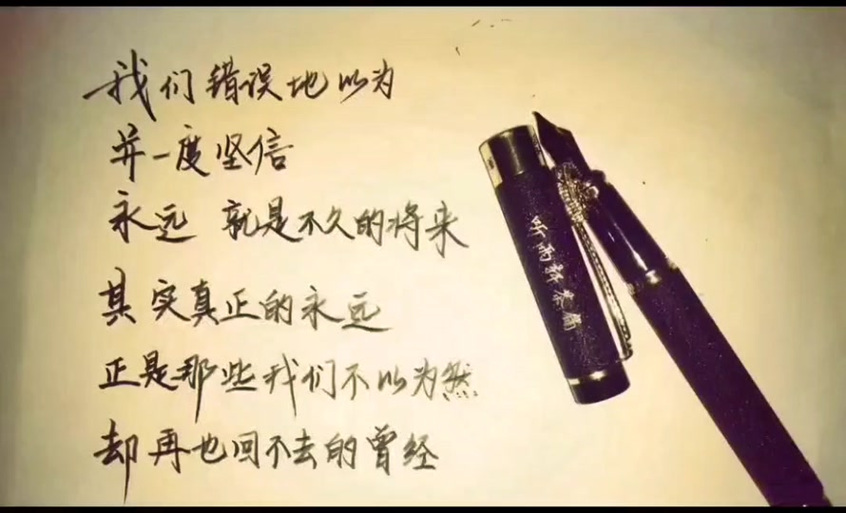 我们错误地以为
并一度坚信
永远 就是不久的将来
其实真正的永远
正是那些我们不以为然
却再也回不去的曾经